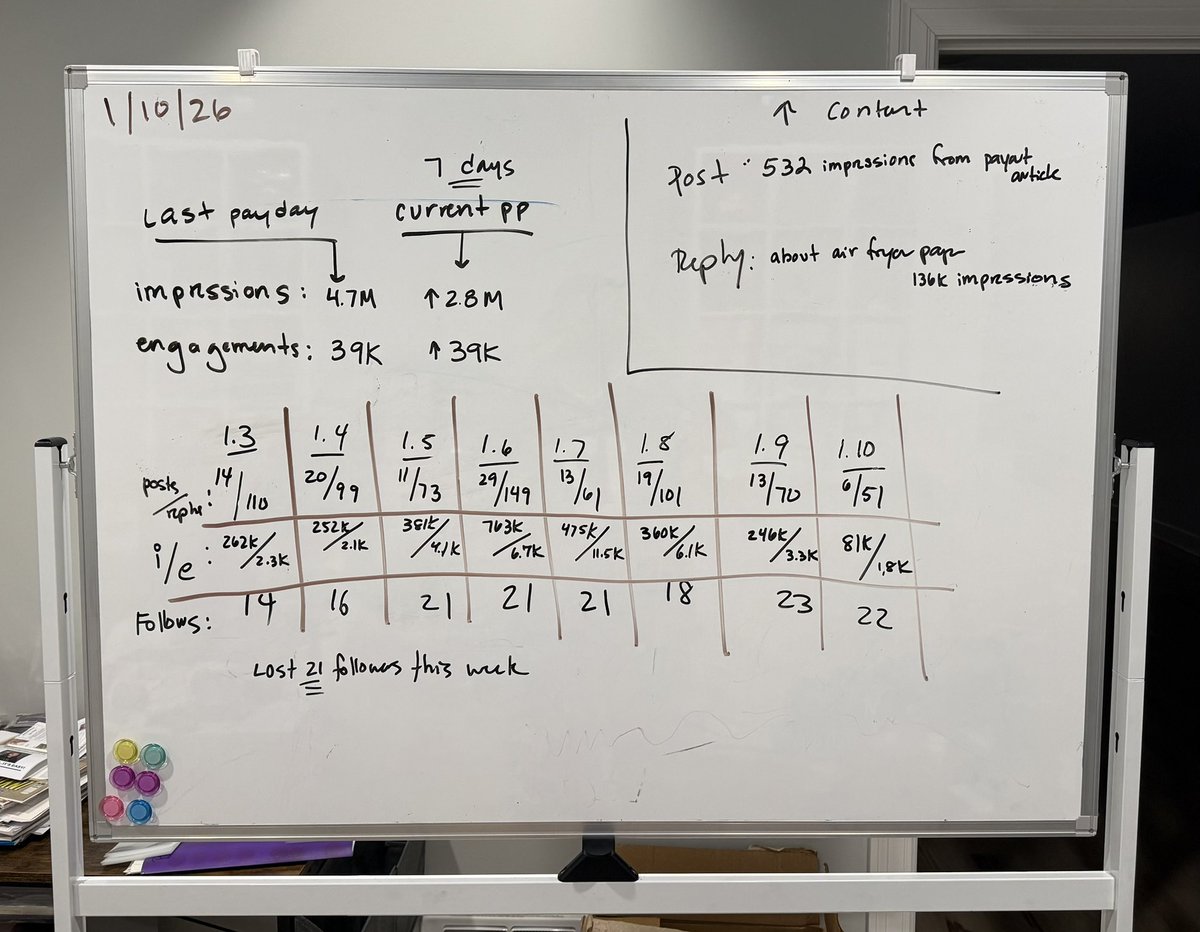 1/10/26
7 days
Last payday
current pp
impressions: 4.7M ↑ 2.8M
engagements: 39K ↑ 39K
↑ Content
Post: 532 impressions from payout article
Reply: about air fryer paper
136K impressions
1.3 1.4 1.5 1.6 1.7 1.8 1.9 1.10
posts/replies: 14/110 20/99 11/73 29/149 13/61 19/101 13/70 6/51
i/e: 262K/2.3K 252K/2.1K 381K/4.1K 763K/6.7K 475K/11.5K 360K/6.1K 246K/3.3K 81K/1.8K
Follows: 14 16 21 21 21 18 23 22
Lost 21 follows this week